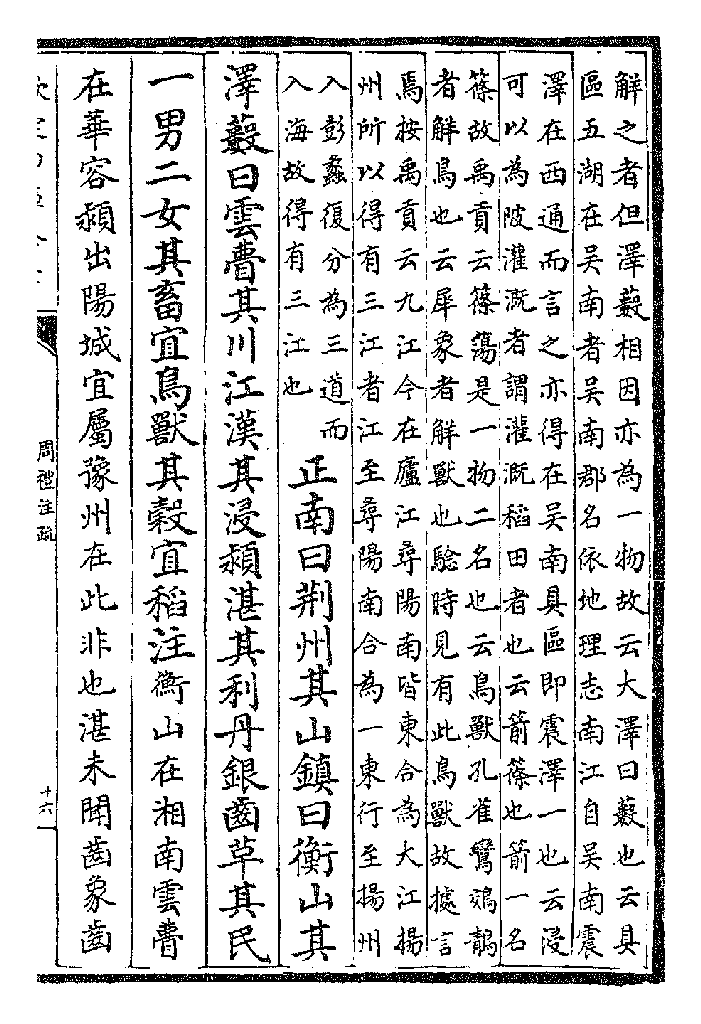 解之者但澤藪相因亦為一物故云大澤曰藪也云具
區五湖在吳南者吳南郡名依地理志南江自吳南震
澤在西通而言之亦得在吳南具區即震澤一也云浸
可以為陂灌溉者謂灌溉稻田者也云箭篠也箭一名
篠故禹貢云篠蕩是一物二名也云鳥獸孔雀鸞鵁鶄
者解鳥也云犀象者解獸也驗時見有此鳥獸故據言
焉按禹貢云九江今在廬江尋陽南皆東合為大江揚
州所以得有三江者江至尋陽南合為一東行至揚州
入彭蠡復分為三道而
入海故得有三江也
正南曰荆州其山鎮曰衡山其
澤藪曰雲瞢其川江漢其浸潁湛其利丹銀齒草其民
一男二女其畜宜鳥獸其穀宜稻注衡山在湘南雲瞢
在華容潁出陽城宜屬豫州在此非也湛未聞齒象齒
周禮注疏
十六